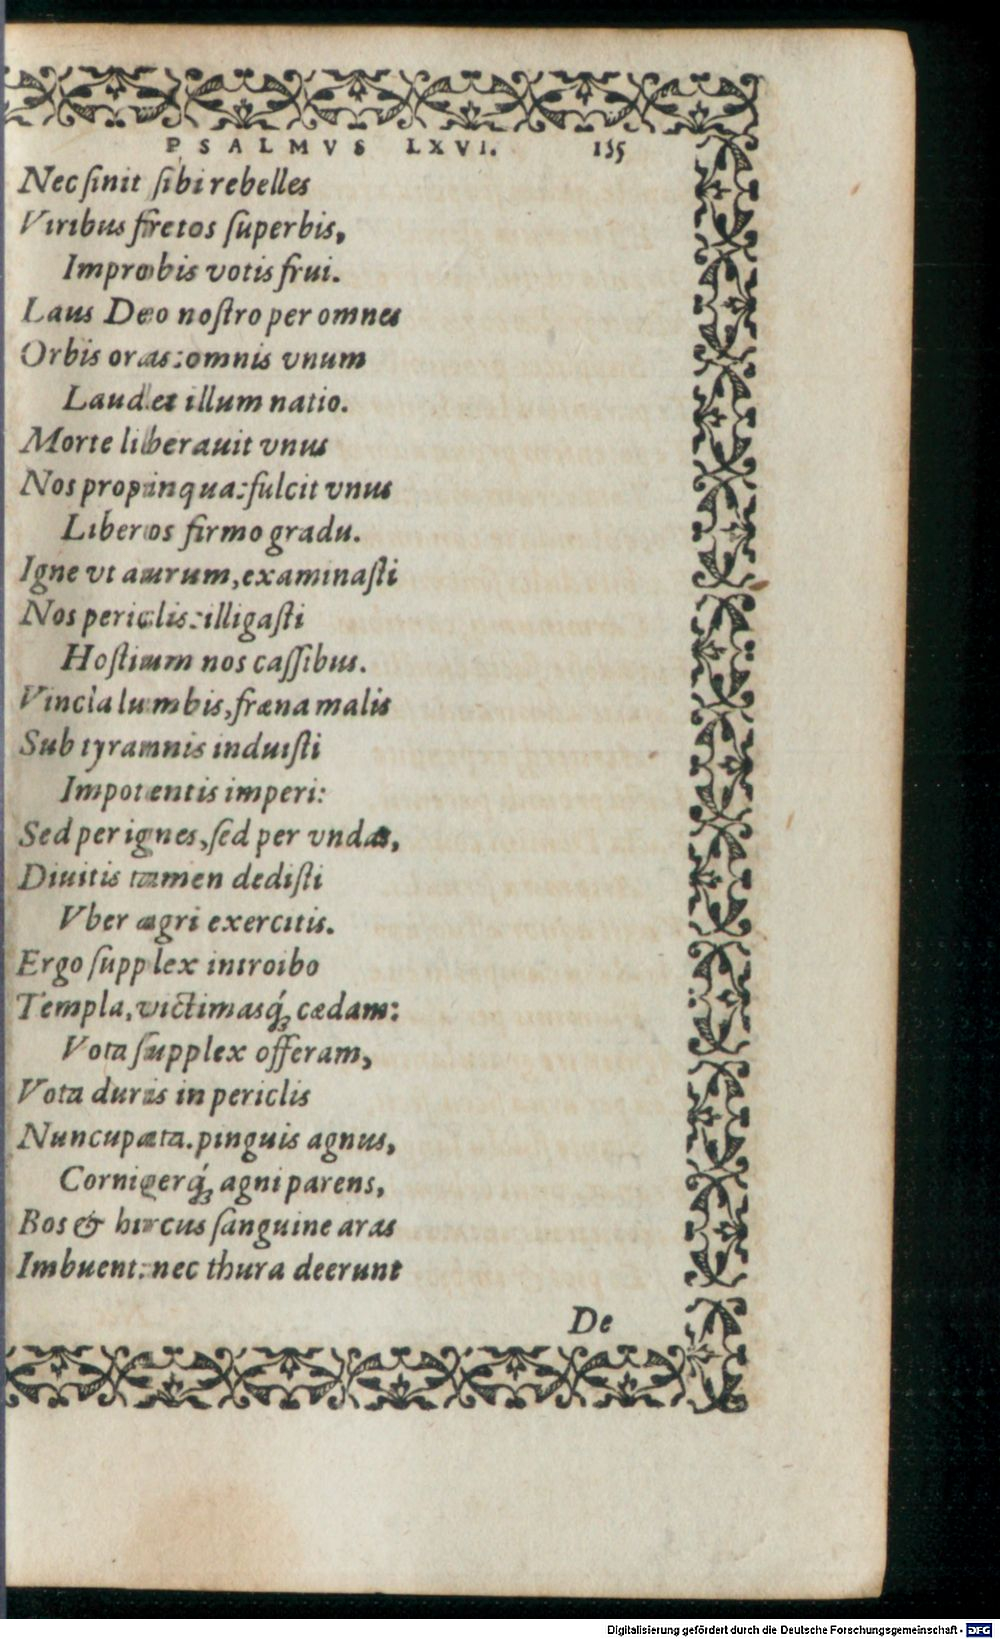 PSALMVS LXVI. 135
Nec ſinit ſibi rebelles
Viribus fretos ſuperbis,
Improbis votis frui.
Laus Deo noſtro per omnes
Orbis oras: omnis vnum
Laudet illum natio.
Morte liberauit vnus
Nos propinqua: fulcit vnus
Liberos firmo gradu.
Igne vt aurum, examinaſti
Nos periclis: illigaſti
Hoſtium nos caſſibus.
Vincla lumbis, fræna malis
Sub tyrannis induiſti
Impotentis imperi:
Sed per ignes, ſed per vndas,
Diuitis tamen dediſti
Vber agri exercitis.
Ergo ſupplex introibo
Templa, victimasq́ꝫ cædam:
Vota ſupplex offeram,
Vota duris in periclis
Nuncupata. pinguis agnus,
Cornigerq́ꝫ agni parens,
Bos & hircus ſanguine aras
Imbuent: nec thura deerunt
De
Digitalisierung gefördert durch die Deutsche Forschungsgemeinschaft - DFG